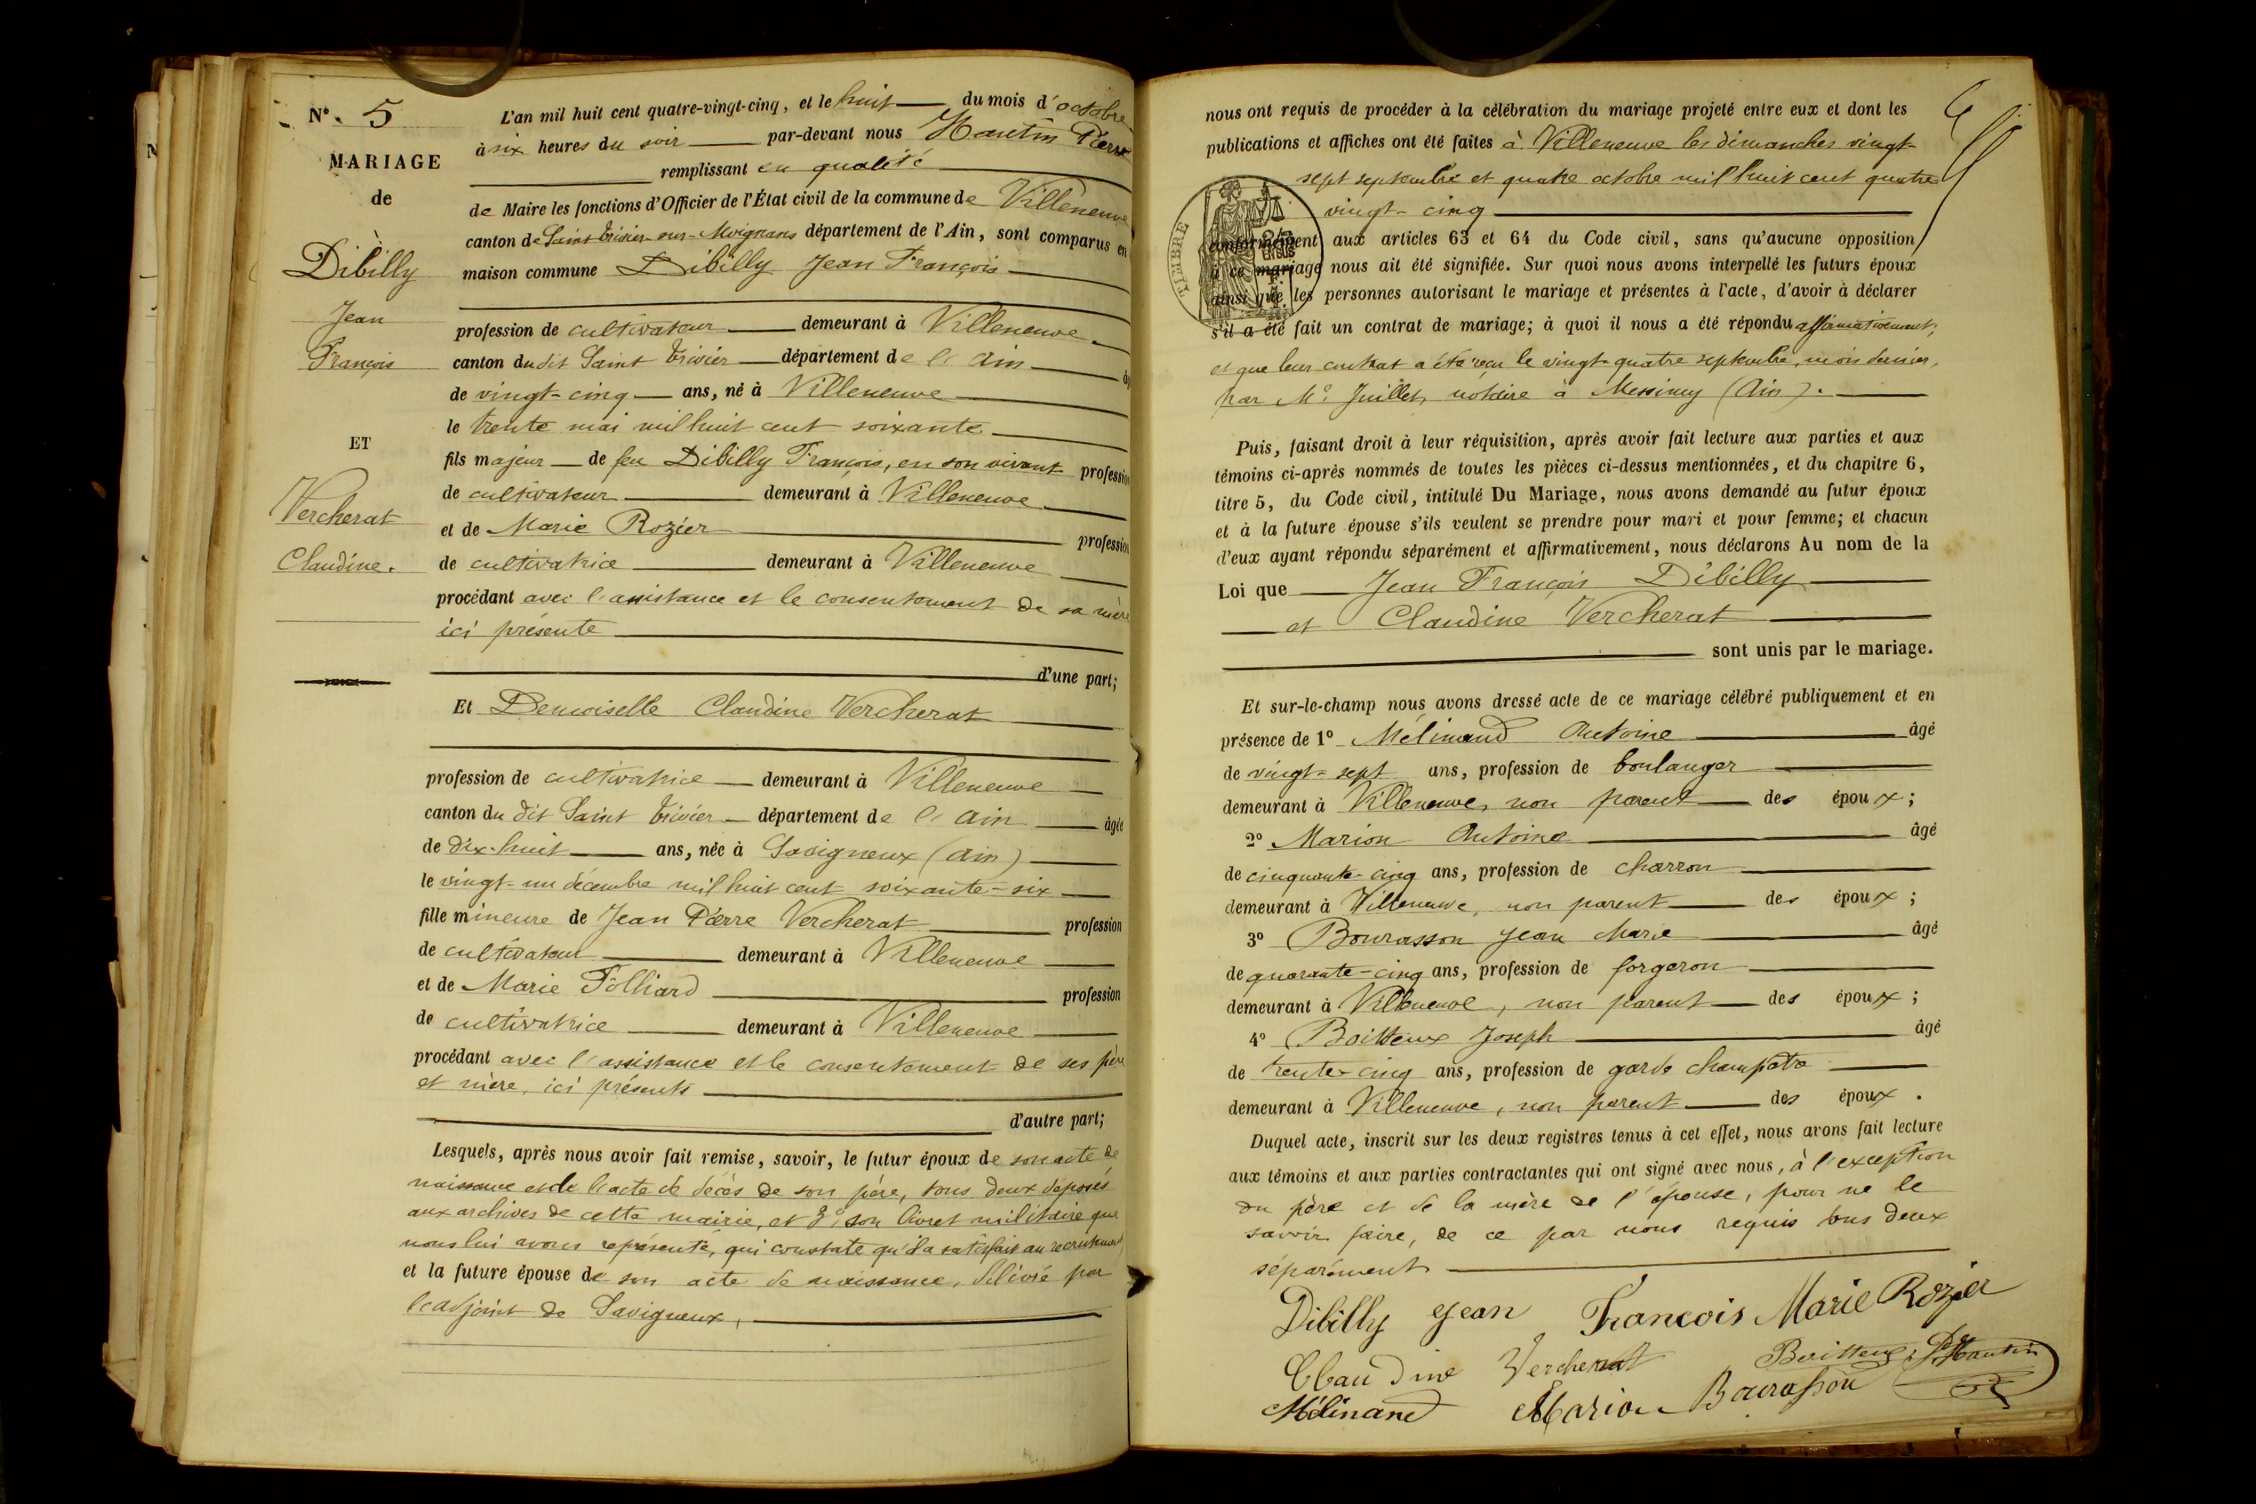 N°. 5
MARIAGE
de
Dibilly
Jean
François
ET
Vercherat
Claudine.
L'an mil huit cent quatre-vingt-cinq, et le huit du mois d'octobre
à six heures du soir par-devant nous Hautin Pierre
remplissant en qualité
de Maire les fonctions d'Officier de l'État civil de la commune de Villeneuve
canton de Saint Trivier-sur-Moignans département de l'Ain, sont comparus en
maison commune Dibilly Jean François
profession de cultivateur demeurant à Villeneuve
canton du dit Saint Trivier département de l'Ain
de vingt-cinq ans, né à Villeneuve
le trente mai mil huit cent soixante
fils majeur de feu Dibilly François, en son vivant profession
de cultivateur demeurant à Villeneuve
et de Marie Rozier profession
de cultivatrice demeurant à Villeneuve
procédant avec l'assistance et le consentement de sa mère
ici présente
d'une part;
Et Demoiselle Claudine Vercherat
profession de cultivatrice demeurant à Villeneuve
canton du dit Saint Trivier département de l'Ain âgée
de dix-huit ans, née à Savigneux (Ain)
le vingt-un décembre mil huit cent soixante-six
fille mineure de Jean Pierre Vercherat profession
de cultivateur demeurant à Villeneuve
et de Marie Folliard profession
de cultivatrice demeurant à Villeneuve
procédant avec l'assistance et le consentement de ses père
et mère, ici présents
d'autre part;
Lesquels, après nous avoir fait remise, savoir, le futur époux de son acte de
naissance et de l'acte de décès de son père, tous deux déposés
aux archives de cette mairie, et 3° son livret militaire que
nous lui avons représenté, qui constate qu'il a satisfait au recrutement
et la future épouse de son acte de naissance, délivré par
l'adjoint de Savigneux,
nous ont requis de procéder à la célébration du mariage projeté entre eux et dont les
publications et affiches ont été faites à Villeneuve les dimanches vingt-
sept septembre et quatre octobre mil huit cent quatre
vingt-cinq
TIMBRE
conformément aux articles 63 et 64 du Code civil, sans qu'aucune opposition
à ce mariage nous ait été signifiée. Sur quoi nous avons interpellé les futurs époux
ainsi que les personnes autorisant le mariage et présentes à l'acte, d'avoir à déclarer
s'il a été fait un contrat de mariage; à quoi il nous a été répondu affirmativement,
et que leur contrat a été reçu le vingt-quatre septembre, mois dernier,
par M° Juillet, notaire à Messimy (Ain).
Puis, faisant droit à leur réquisition, après avoir fait lecture aux parties et aux
témoins ci-après nommés de toutes les pièces ci-dessus mentionnées, et du chapitre 6,
titre 5, du Code civil, intitulé Du Mariage, nous avons demandé au futur époux
et à la future épouse s'ils veulent se prendre pour mari et pour femme; et chacun
d'eux ayant répondu séparément et affirmativement, nous déclarons Au nom de la
Loi que Jean François Dibilly
et Claudine Vercherat
sont unis par le mariage.
Et sur-le-champ nous avons dressé acte de ce mariage célébré publiquement et en
présence de 1° Mélinand Antoine âgé
de vingt-sept ans, profession de boulanger
demeurant à Villeneuve, non parent des époux;
2° Marion Antoine âgé
de cinquante-cinq ans, profession de charron
demeurant à Villeneuve, non parent des époux;
3° Bourasson Jean Marie âgé
de quarante-cinq ans, profession de forgeron
demeurant à Villeneuve, non parent des époux;
4° Boitteux Joseph âgé
de trente-cinq ans, profession de garde champêtre
demeurant à Villeneuve, non parent des époux.
Duquel acte, inscrit sur les deux registres tenus à cet effet, nous avons fait lecture
aux témoins et aux parties contractantes qui ont signé avec nous, à l'exception
du père et de la mère de l'épouse, pour ne le
savoir faire, de ce par nous requis tous deux
séparément
Dibilly Jean François Marie Rozier
Claudine Vercherat Boitteux P. Hautin
Mélinand Marion Bourasson